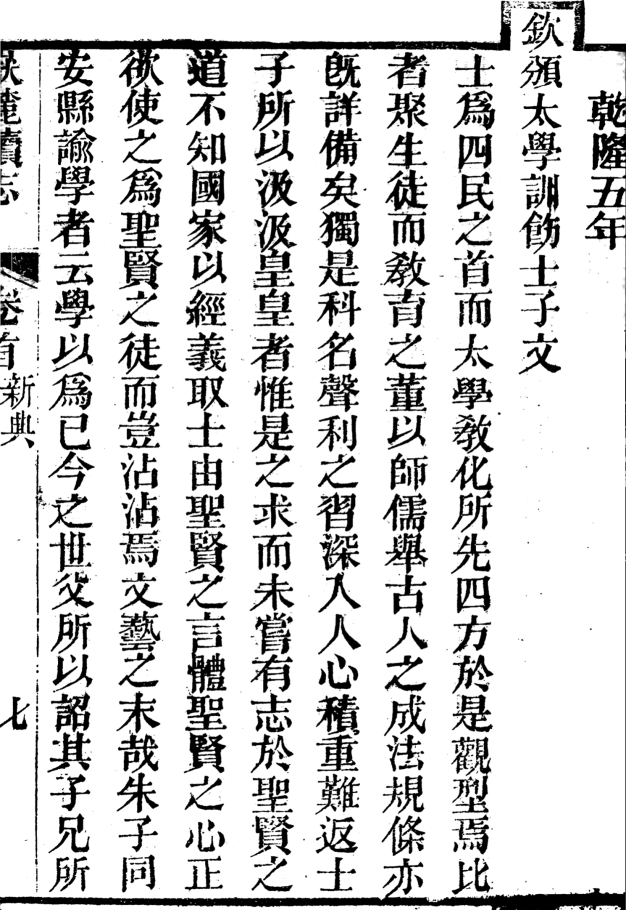 乾隆五年
欽頒太學訓飭士子文
士爲四民之首而太學敎化所先四方於是觀型焉比
者聚生徒而敎育之董以師儒舉古人之成法規條亦
旣詳備矣獨是科名聲利之習深入人心積重難返士
子所以汲汲皇皇者惟是之求而未嘗有志於聖賢之
道不知國家以經義取士由聖賢之言體聖賢之心正
欲使之爲聖賢之徒而豈沾沾焉文藝之末哉朱子同
安縣諭學者云學以爲己今之世父所以詔其子兄所
麓續志
卷首
新典
七